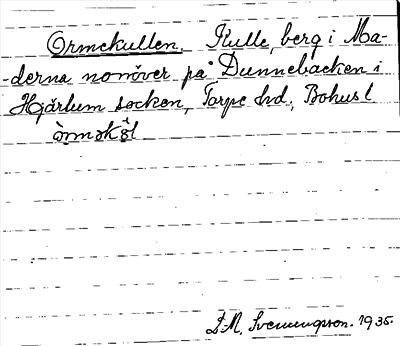 Ormekullen, Kulle, berg i Ma-
-derna norröver på Dunnebacken i
Hjärtum socken, Torpe hd., Bohusl
òrməkö̀l
Svenungsson. 1935.